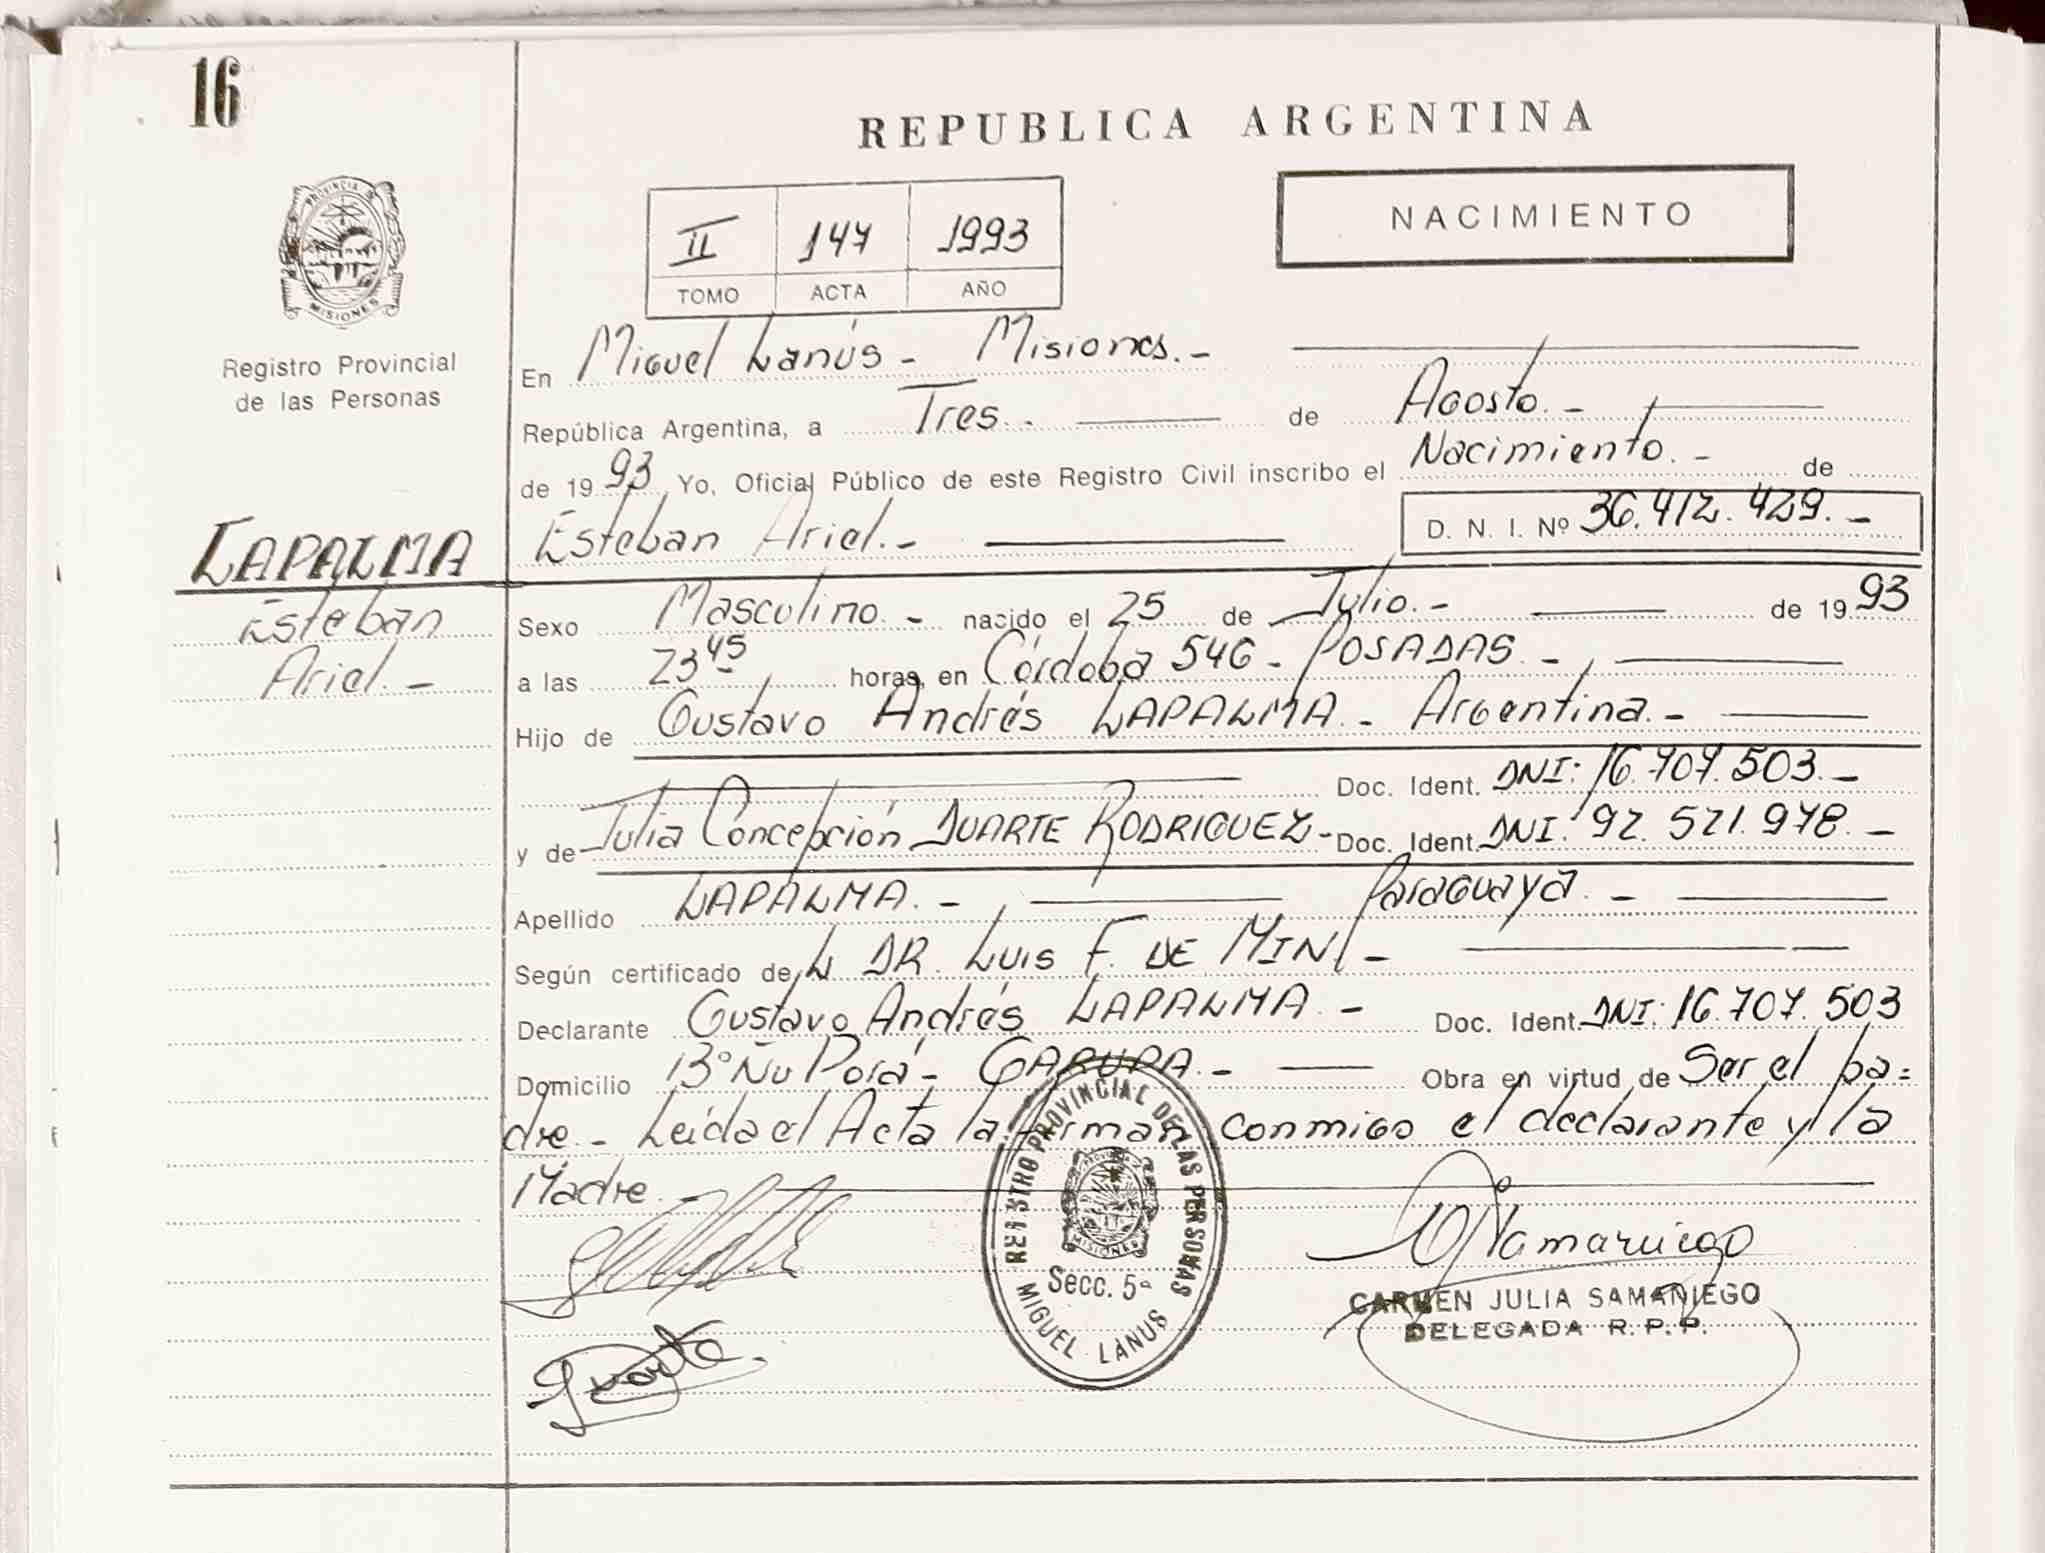 16
REPUBLICA ARGENTINA
PROVINCIA DE
MISIONES
Registro Provincial
de las Personas
II 147 1993
TOMO ACTA AÑO
NACIMIENTO
En Miguel Lanús - Misiones.-
República Argentina, a Tres.- de Agosto.-
de 1993 Yo, Oficial Público de este Registro Civil inscribo el Nacimiento.- de
Esteban Ariel.- D. N. I. Nº 36.412.429.-
LAPALMA
Esteban
Ariel.-
Sexo Masculino.- nacido el 25 de Julio.- de 1993
a las 23 45 horas, en Córdoba 546 - POSADAS.-
Hijo de Gustavo Andrés LAPALMA.- Argentina.-
Doc. Ident. DNI: 16.707.503.-
y de Julia Concepción DUARTE RODRIGUEZ- Doc. Ident. DNI: 92.521.978.-
Apellido LAPALMA.- Paraguaya.-
Según certificado de DR. LUIS F. DE MINI-
Declarante Gustavo Andrés LAPALMA.- Doc. Ident. DNI: 16.707.503
Domicilio Bº Ñu Porá - GARUPA.- Obra en virtud de Ser el pa=
dre.- Leída el Acta la firman conmigo el declarante y la
Madre.-
REGISTRO PROVINCIAL DE LAS PERSONAS
MISIONES
Secc. 5ª
MIGUEL LANUS
Duarte
Samaniego
CARMEN JULIA SAMANIEGO
DELEGADA R. P. P.